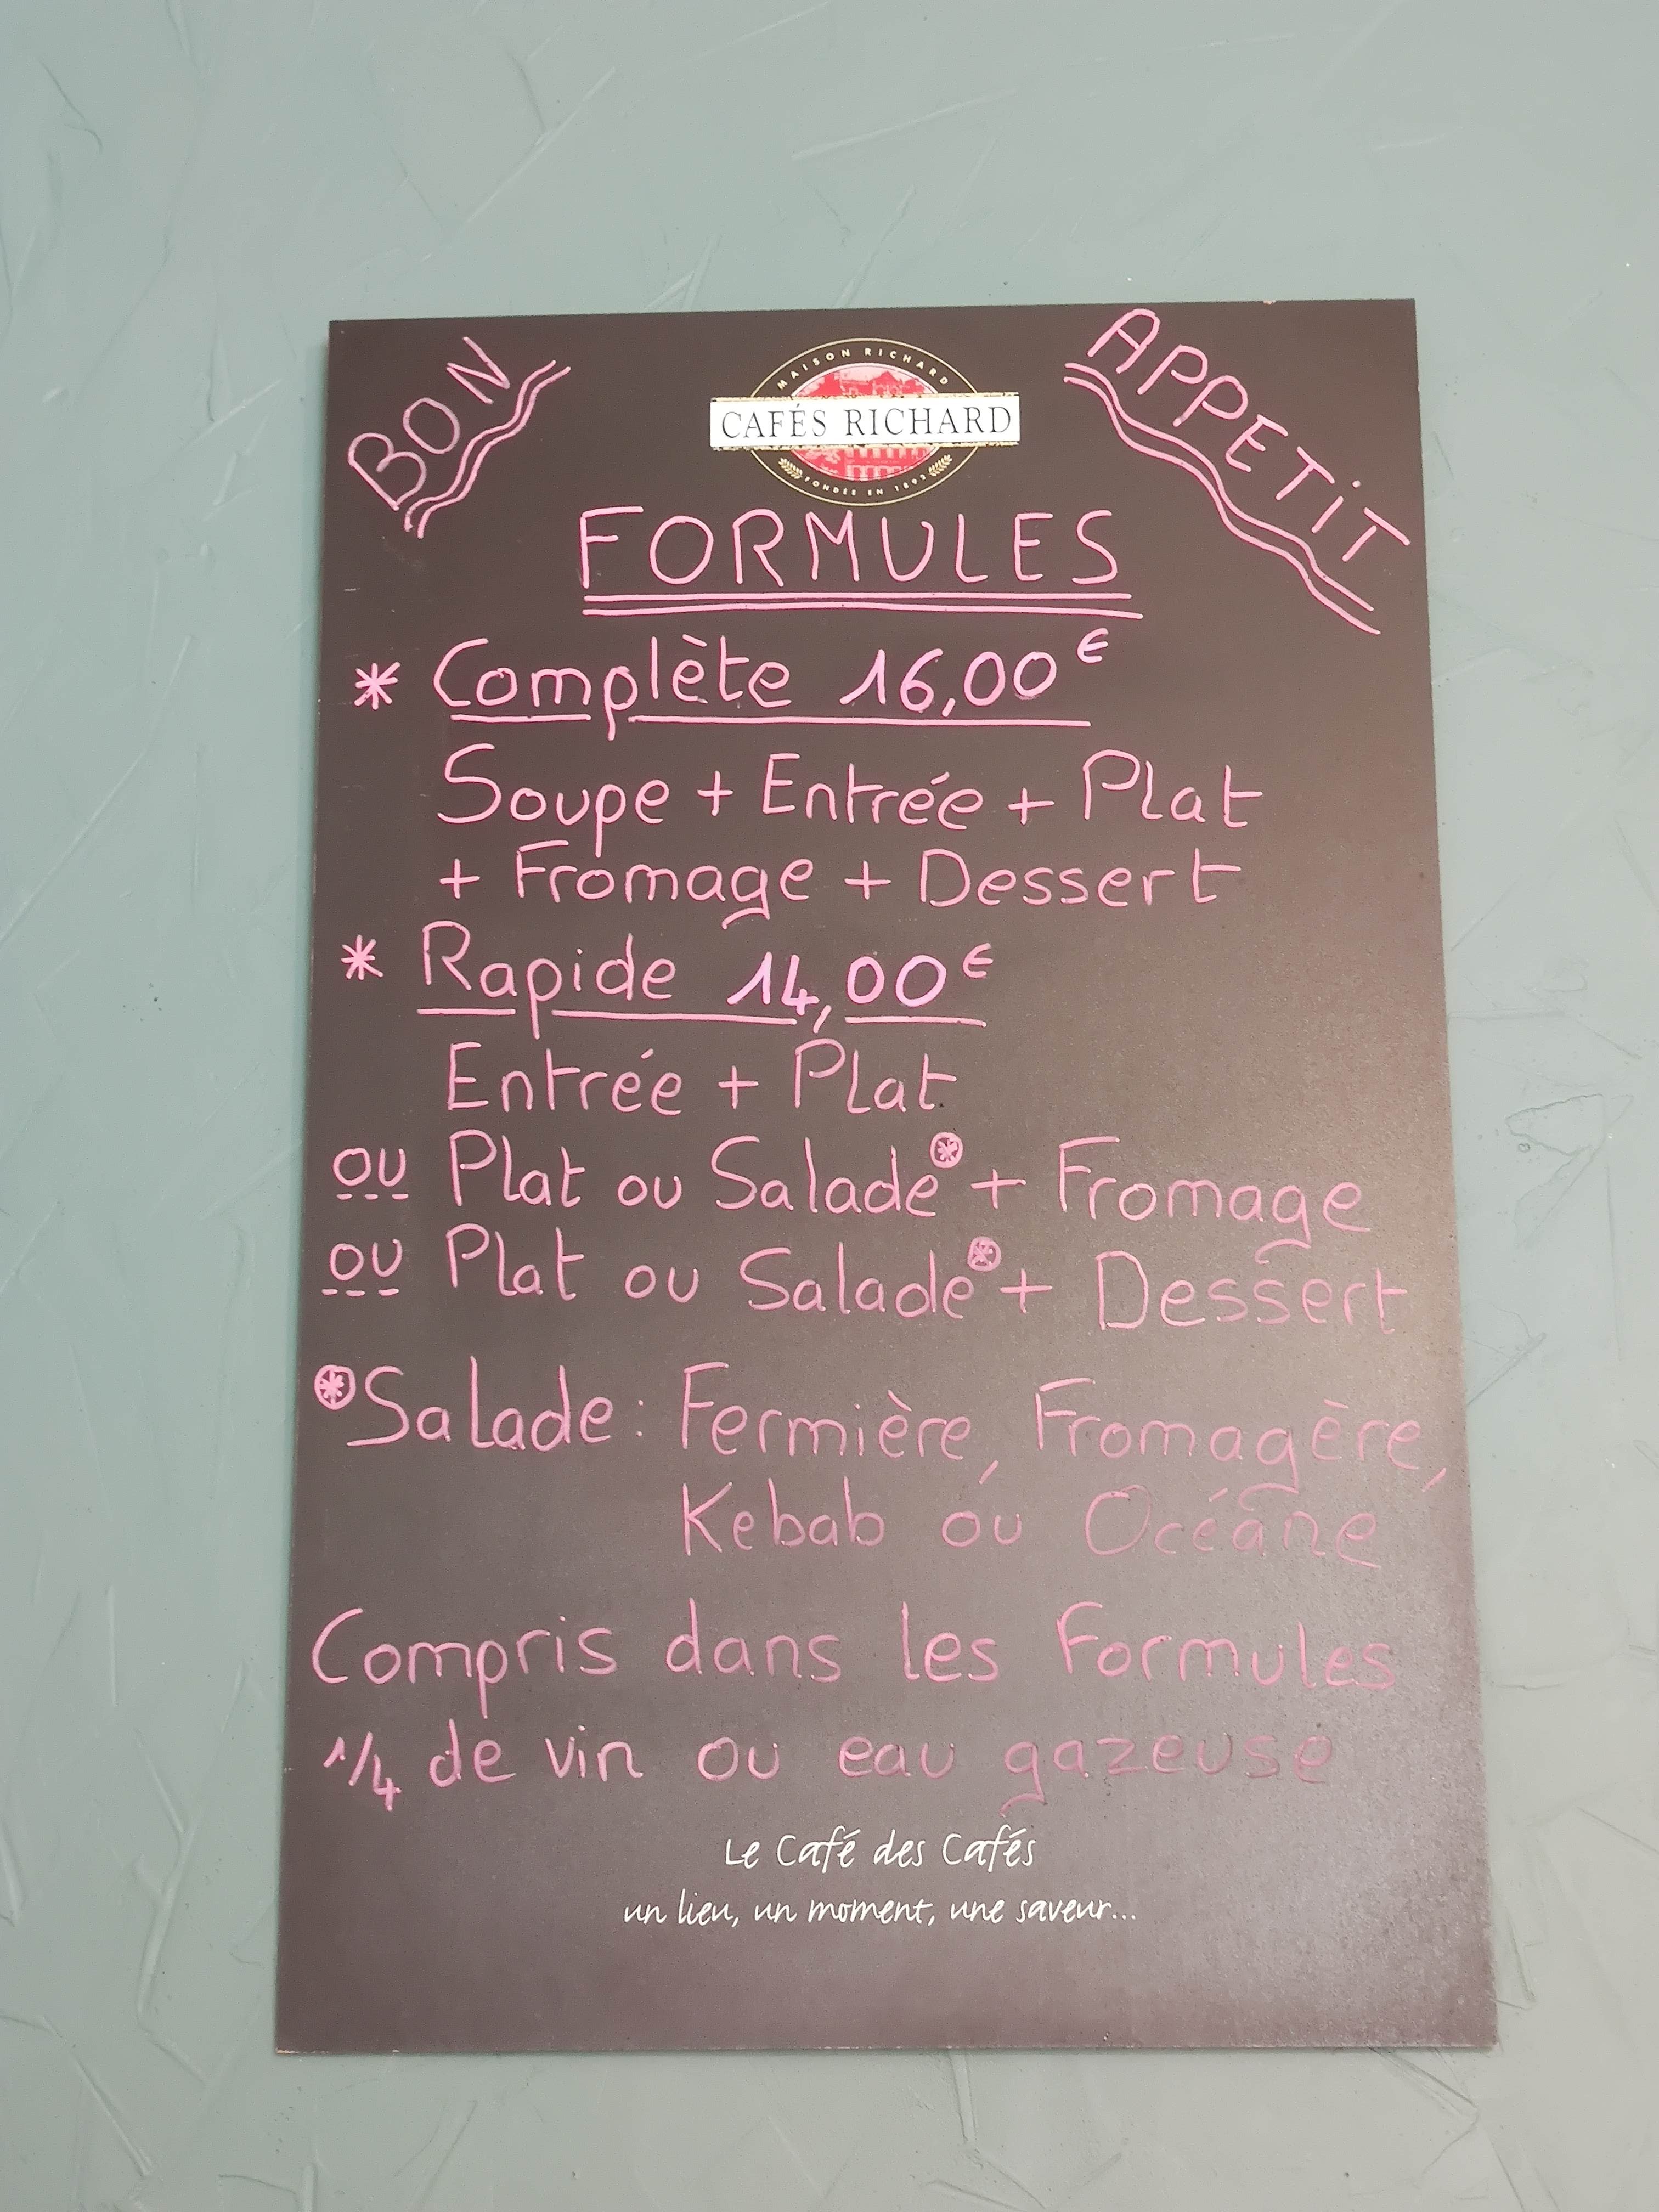 BON
APPETIT
MAISON RICHARD
CAFÉS RICHARD
FONDÉE EN 1892
FORMULES
* Complète 16,00€
Soupe + Entrée + Plat
+ Fromage + Dessert
* Rapide 14,00€
Entrée + Plat
ou Plat ou Salade* + Fromage
ou Plat ou Salade* + Dessert
*Salade : Fermière, Fromagère,
Kebab ou Océane
Compris dans les Formules
1/4 de vin ou eau gazeuse
Le Café des Cafés
un lieu, un moment, une saveur...